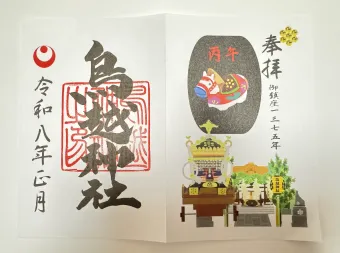 奉拝
御鎮座一三七五年
丙午
鳥越神社
令和八年正月